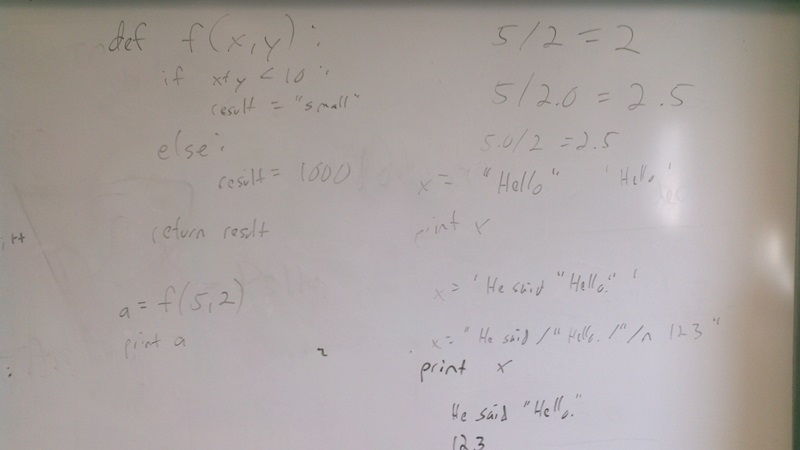 def f(x,y):
if x+y < 10:
result = "small"
else:
result = 1000
return reslt
a = f(5,2)
print a
5/2 = 2
5/2.0 = 2.5
5.0/2 = 2.5
x = "Hello" 'Hello'
print x
x = 'He said "Hello."'
x = "He said /"Hello./"/n 123"
print x
He said "Hello."
123